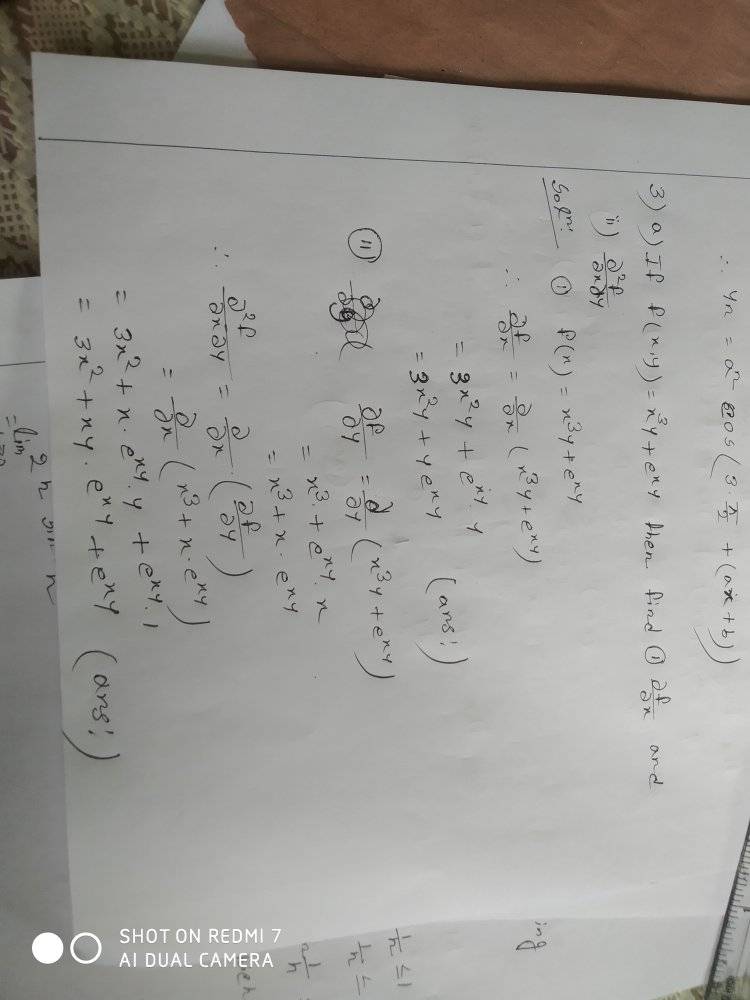 ∴ yn = a² cos(3·π/2 + (ax + b))
3) a) If f(x,y) = x³y + e^xy then find ① ∂f/∂x and
ii) ∂²f/∂x∂y
Solⁿ: ① f(x) = x³y + e^xy
∴ ∂f/∂x = ∂/∂x (x³y + e^xy)
= 3x²y + e^xy. y
= 3x²y + y e^xy (ans:)
(ii) ∂f/∂y = ∂/∂y (x³y + e^xy)
= x³. + e^xy. x
= x³ + x. e^xy
∴ ∂²f/∂x∂y = ∂/∂x (∂f/∂y)
= ∂/∂x (x³ + x. e^xy)
= 3x² + x. e^xy. y + e^xy. 1
= 3x² + xy. e^xy + e^xy (ans:)
= lim
ing
1/n ≤ 1
1/n ≤
SHOT ON REDMI 7
AI DUAL CAMERA